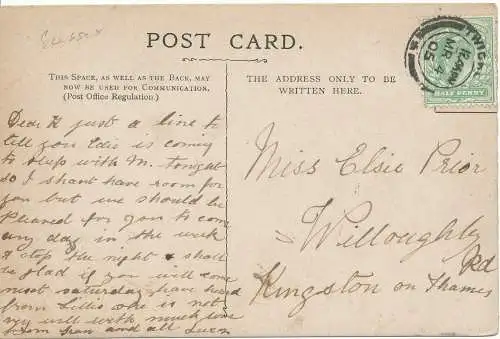 POST CARD.
THIS SPACE, AS WELL AS THE BACK, MAY
NOW BE USED FOR COMMUNICATION.
(Post Office Regulation.)
THE ADDRESS ONLY TO BE
WRITTEN HERE.
HALF PENNY
Dear K just a line to
tell you Edie is coming
to sleep with M. tonight
so I shant have room for
you but we should be
pleased for you to com
any day in the week
& stop the night & shall
be glad if you will come
next saturday, have heard
from Lillie she is not
very well with much love
from and all
Miss Elsie Prior
Willoughby
Rd
Kingston on Thames